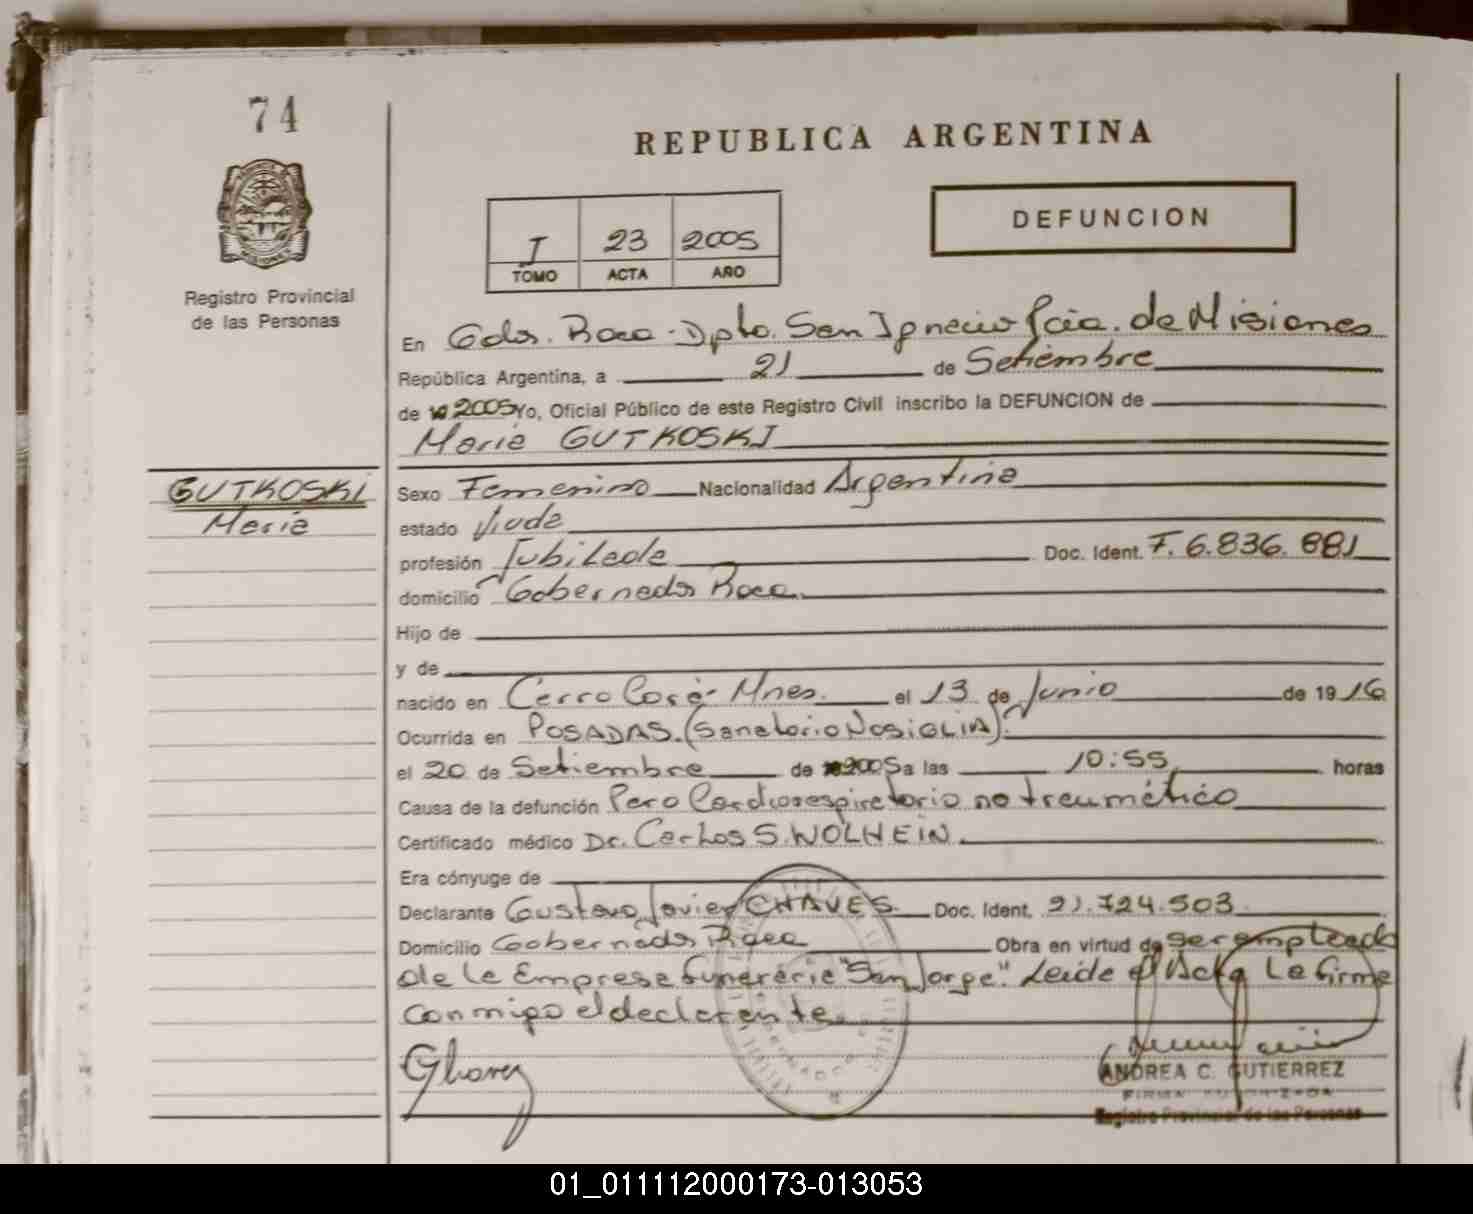 74
REPUBLICA ARGENTINA
I 23 2005
TOMO ACTA AÑO
DEFUNCION
Registro Provincial
de las Personas
En Gdor. Roca - Dpto. San Ignacio Pcia. de Misiones
República Argentina, a 21 de Setiembre
de 2005 Yo, Oficial Público de este Registro Civil inscribo la DEFUNCION de
María GUTKOSKI
GUTKOSKI
María
Sexo Femenino Nacionalidad Argentina
estado Viuda
profesión Jubilada Doc. Ident. F. 6.836.881
domicilio Gobernador Roca
Hijo de
y de
nacido en Cerro Corá - Mnes. el 13 de Junio de 1916
Ocurrida en POSADAS. (Sanatorio NOSIGLIA).
el 20 de Setiembre de 2005 a las 10:55 horas
Causa de la defunción Paro Cardiorespiratorio no traumático
Certificado médico Dr. Carlos S. WOLHEIN.
Era cónyuge de
Declarante Gustavo Javier CHAVES Doc. Ident. 21.724.503
Domicilio Gobernador Roca Obra en virtud de ser empleado
de la Empresa funeraria "San Jorge". Leída el Acta La firma
conmigo el declarante.
GChavez
ANDREA C. GUTIERREZ
FIRMA AUTORIZADA
Registro Provincial de las Personas
01_011112000173-013053